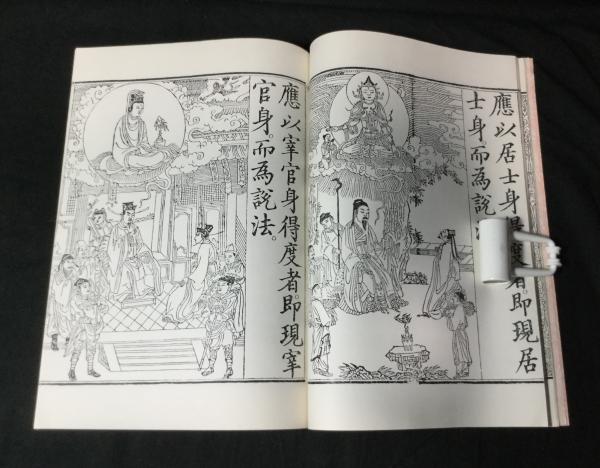 應以居士身得度者。即現居
士身而為說法
應以宰官身得度者。即現宰
官身。而為說法。